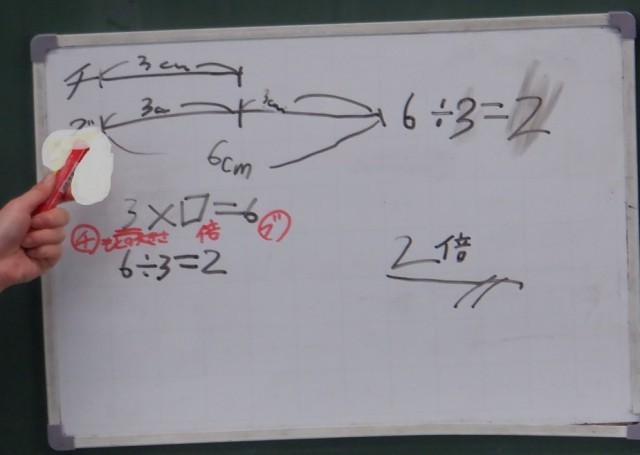 チ 3cm
ブ 3cm 3cm
6cm
6÷3=2
3×□=6
チ もとの大きさ 倍 ブ
6÷3=2
2倍